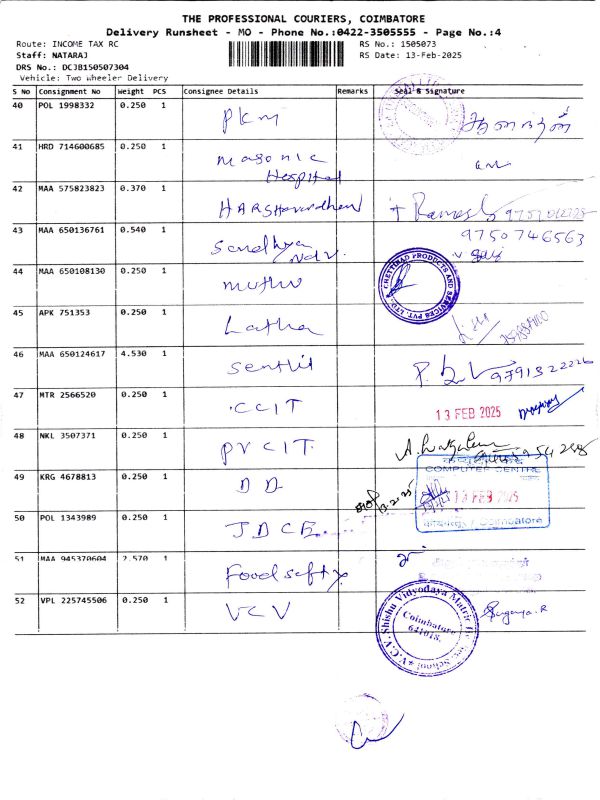 THE PROFESSIONAL COURIERS, COIMBATORE
Delivery Runsheet - MO - Phone No.:0422-3505555 - Page No.:4
Route: INCOME TAX RC
RS No.: 1505073
Staff: NATARAJ
RS Date: 13-Feb-2025
DRS No.: DCJB150507304
Vehicle: Two Wheeler Delivery
S No Consignment No Weight PCS Consignee Details Remarks Seal & Signature
40 POL 1998332 0.250 1 PKM
41 HRD 714600685 0.250 1 Masonic
Hospital
42 MAA 575823823 0.370 1 HARSHavardhan
43 MAA 650136761 0.540 1 Sandhya 9750746563
44 MAA 650108130 0.250 1 muthu CHETTINAD PRODUCTS AND SERVICES PVT. LTD.
45 APK 751353 0.250 1 Latha
46 MAA 650124617 4.530 1 Senthil 9791322226
47 MTR 2566520 0.250 1 CCIT 13 FEB 2025
48 NKL 3507371 0.250 1 PVCIT.
49 KRG 4678813 0.250 1 DD 13.2.25 COMPUTER CENTRE
13 FEB 2025
50 POL 1343989 0.250 1 JDCE Coimbatore
51 MAA 945370604 2.570 1 Food safty
52 VPL 225745506 0.250 1 VCV V.C.V. Shishu Vidyodaya Matric Hr. Sec. School Coimbatore 641018. Suganya.R